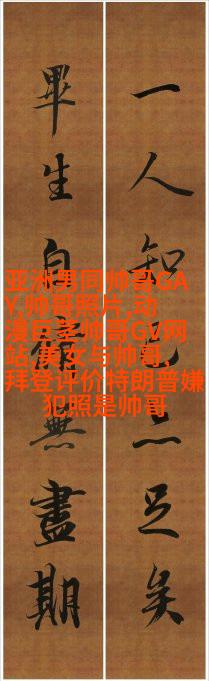 一人知己亦足矣
畢生自脩無盡期
亚洲男同帅哥GA
Y,帅哥照片,动
漫巨茎帅哥GV网
站,美女与帅哥,
拜登评价特朗普嫌
犯照是帅哥